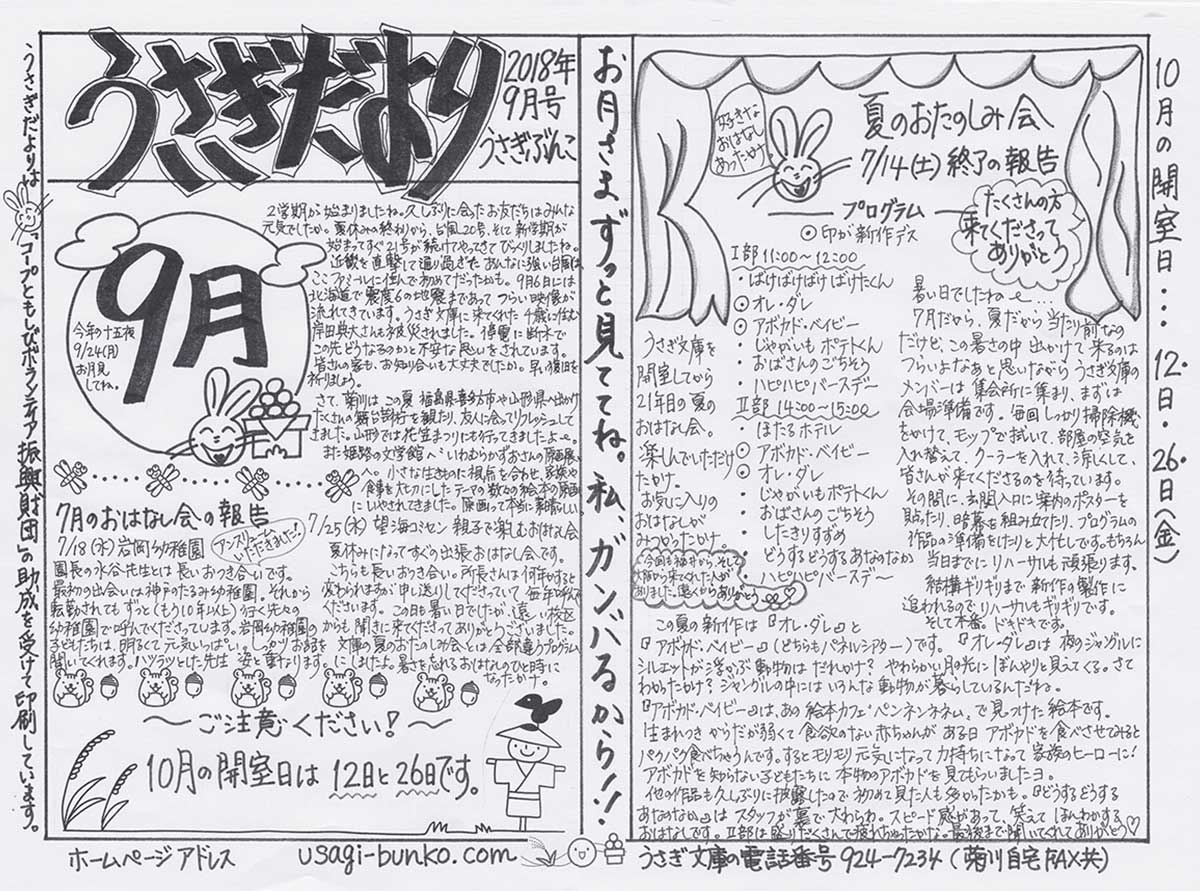 うさぎだよりは、「コープともしびボランティア振興財団」の助成を受けて印刷しています。
うさぎだより
2018年
9月号
うさぎぶんこ
9月
今年の十五夜
9/24(月)
お月見
してね。
2学期が始まりましたね。久しぶりに会ったお友だちはみんな
元気でしたか。夏休みの終わりから、台風20号、そして新学期が
始まってすぐ21号が続けてやってきてびっくりしましたね。
近畿を直撃して通り過ぎた あんなに強い台風は、
ここファミールに住んで初めてだったかも。9月6日には
北海道で震度6の地震まであって つらい映像が
流れてきています。うさぎ文庫に来てくれた 千歳に住む
岸田典大さんも被災されました。停電に断水で
この先どうなるのかと不安な思いをされています。
皆さんの家も、お知り合いも大丈夫でしたか。早い復旧を
祈りましょう。
さて、菊川は この夏 福島県喜多方市や山形県へ出かけ
たくさんの舞台芸術を観たり、友人に会ってリフレッシュして
きました。山形では花笠まつりにも行ってきましたよ〜。
また姫路の文学館へ いわむらかずおさんの原画展
へ。小さな生きものに視点を合わせ、家族や
食事を大切にしたテーマの数々の絵本の原画
にいやされてきました。原画って本当に素晴らしい。
7月のおはなし会の報告
7/18(水)岩岡幼稚園
アンスリュームを
いただきました!
園長の水谷先生とは長いおつき合いです。
最初の出会いは神戸のたるみ幼稚園。それから
転勤されてもずっと(もう10年以上)行く先々の
幼稚園で呼んでくださっています。岩岡幼稚園の
子どもたちは、明るくて元気いっぱい。しっかりお話を
聞いてくれます。ハツラツとした先生の姿と重なります。
7/25(水)望海コミセン 親子で楽しむおはなし会
夏休みになってすぐの出張おはなし会です。
こちらも長いおつき合い。所長さんは何年かすると
変わられますが申し送りしてくださっていて毎年呼んで
くださいます。この日も暑い日でしたが、遠い校区
からも聞きに来てくださってありがとうございました。
文庫の夏のおたのしみ会とは全部違うプログラム
にしましたよ。暑さを忘れるおはなしのひと時に
なったかナ。
〜ご注意ください!〜
10月の開室日は 12日と26日です。
ホームページアドレス
usagi-bunko.com
お月さまずっと見ててね。私、ガンバるから!!
好きな
おはなし
あったかナ
夏のおたのしみ会
7/14(土)終了の報告
プログラム
⊙印が新作デス
たくさんの方
来てくださって
ありがとう
Ⅰ部 11:00〜12:00
・ばけばけばけばけばけたくん
⊙オレ・ダレ
⊙アボカド・ベイビー
・じゃがいもポテトくん
・おばさんのごちそう
・ハピハピバースデー
Ⅱ部 14:00〜15:00
・ほたるホテル
⊙アボカド・ベイビー
⊙オレ・ダレ
・じゃがいもポテトくん
・おばさんのごちそう
・したきりすずめ
・どうするどうするあなのなか
・ハピハピバースデー
うさぎ文庫を
開室してから
21年目の夏の
おはなし会。
楽しんでいただけ
たかナ。
お気に入りの
おはなしが
みつかったかナ。
今回も福井から、そして
大阪から来てくれた人が
ありました。遠くからありがとう♡
暑い日でしたね〜…
7月だから、夏だから当たり前なの
だけど、この暑さの中 出かけて来るのは
つらいよなあと思いながらうさぎ文庫の
メンバーは集会所に集まり、まずは
会場準備です。毎回しっかり掃除機
をかけて、モップで拭いて、部屋の空気を
入れ替えて、クーラーを入れて、涼しくして、
皆さんが来てくださるのを待っています。
その間に、玄関入口に案内のポスターを
貼ったり、暗幕を組み立てたり、プログラムの
作品の準備をしたりと大忙しです。もちろん
当日までにリハーサルも頑張ります。
結構ギリギリまで新作の製作に
追われるのでリハーサルもギリギリです。
そして本番。ドキドキです。
この夏の新作は『オレ・ダレ』と
『アボカド・ベイビー』(どちらもパネルシアター)です。『オレ・ダレ』は夜のジャングルに
シルエットが浮かぶ動物はだれかナ? やわらかい月の光にぼんやりと見えてくる。さて
わかったかナ? ジャングルの中にはいろんな動物が暮らしているんだね。
『アボカド・ベイビー』は、あの絵本カフェ“ペンネンネネム”で見つけた絵本です。
生まれつきからだが弱くて食欲のない赤ちゃんがある日アボカドを食べさせてみると
パクパク食べちゃうんです。するとモリモリ元気になって力持ちになって家族のヒーローに!
アボカドを知らない子どもたちに本物のアボカドを見てもらいましたヨ。
他の作品も久しぶりに披露したので初めて見た人も多かったかも。『どうするどうする
あなのなか』はスタッフが裏で大わらわ。スピード感があって、笑えてほんわかする
おはなしです。Ⅱ部は盛りだくさんで疲れちゃったかな。最後まで聞いてくれてありがとう♡
うさぎ文庫の電話番号 924-7234(菊川自宅FAX共)
10月の開室日…12日・26日(金)